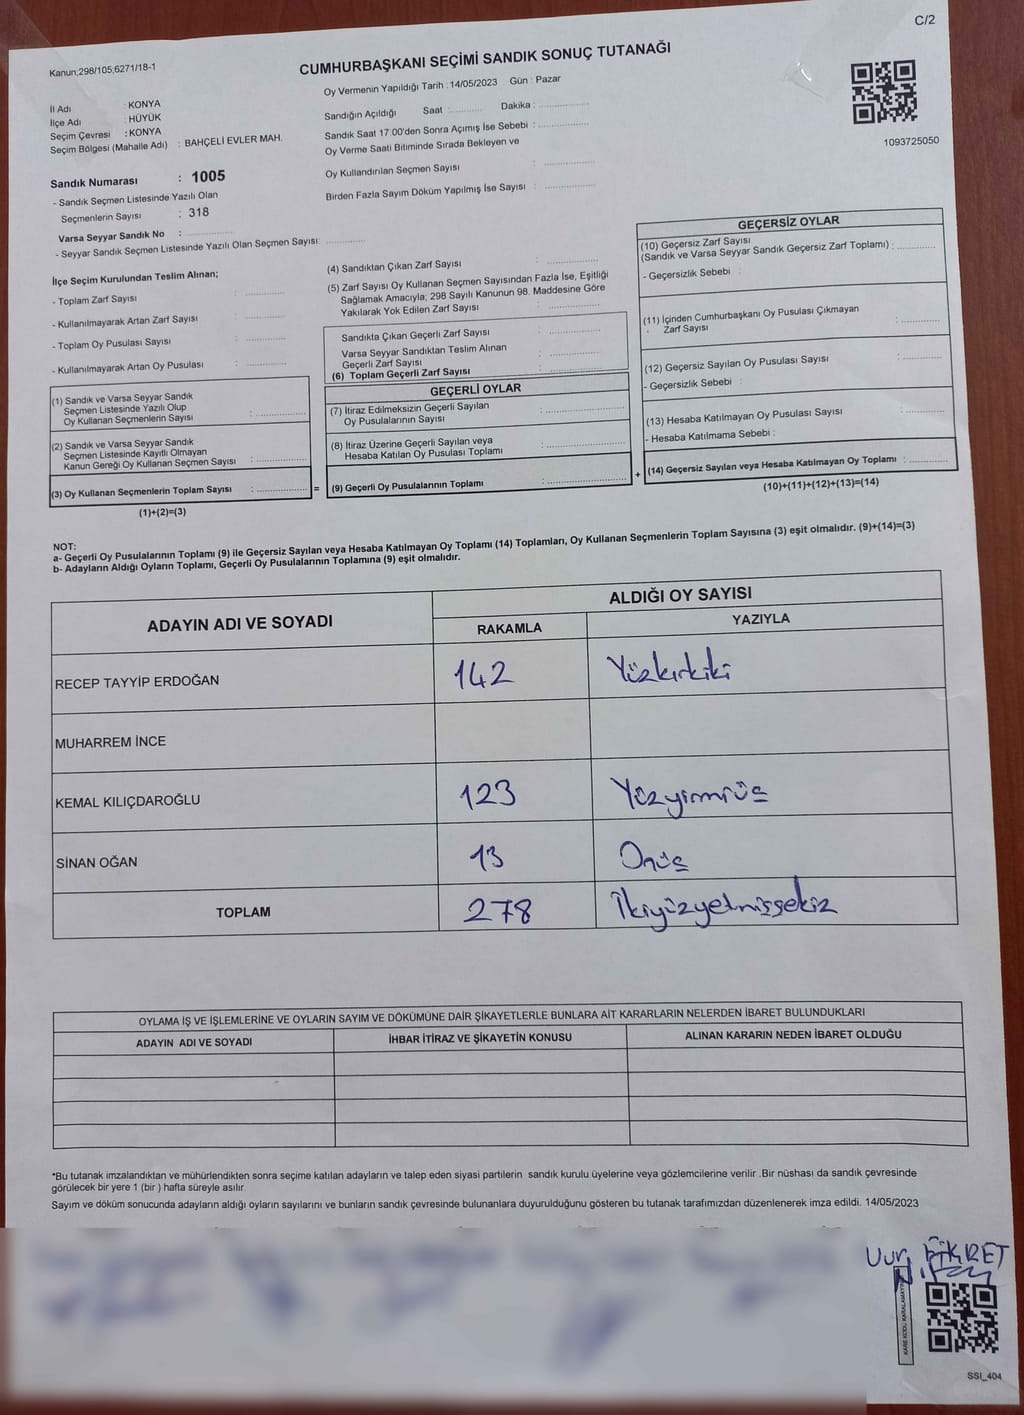 C/2
Kanun;298/105;6271/18-1
CUMHURBAŞKANI SEÇİMİ SANDIK SONUÇ TUTANAĞI
Oy Vermenin Yapıldığı Tarih : 14/05/2023 Gün : Pazar
İl Adı : KONYA
İlçe Adı : HÜYÜK
Seçim Çevresi : KONYA
Seçim Bölgesi (Mahalle Adı) : BAHÇELİ EVLER MAH.
Sandığın Açıldığı Saat : Dakika :
Sandık Saat 17 00'den Sonra Açımış İse Sebebi :
Oy Verme Saati Bitiminde Sırada Bekleyen ve
Oy Kullandırılan Seçmen Sayısı :
Birden Fazla Sayım Döküm Yapılmış İse Sayısı :
1093725050
Sandık Numarası : 1005
- Sandık Seçmen Listesinde Yazılı Olan
Seçmenlerin Sayısı : 318
Varsa Seyyar Sandık No :
- Seyyar Sandık Seçmen Listesinde Yazılı Olan Seçmen Sayısı:
İlçe Seçim Kurulundan Teslim Alınan;
- Toplam Zarf Sayısı :
- Kullanılmayarak Artan Zarf Sayısı :
- Toplam Oy Pusulası Sayısı :
- Kullanılmayarak Artan Oy Pusulası :
(1) Sandık ve Varsa Seyyar Sandık
Seçmen Listesinde Yazılı Olup
Oy Kullanan Seçmenlerin Sayısı :
(2) Sandık ve Varsa Seyyar Sandık
Seçmen Listesinde Kayıtlı Olmayan
Kanun Gereği Oy Kullanan Seçmen Sayısı :
(3) Oy Kullanan Seçmenlerin Toplam Sayısı : =
(1)+(2)=(3)
(4) Sandıktan Çıkan Zarf Sayısı :
(5) Zarf Sayısı Oy Kullanan Seçmen Sayısından Fazla İse, Eşitliği
Sağlamak Amacıyla; 298 Sayılı Kanunun 98. Maddesine Göre
Yakılarak Yok Edilen Zarf Sayısı :
Sandıkta Çıkan Geçerli Zarf Sayısı :
Varsa Seyyar Sandıktan Teslim Alınan
Geçerli Zarf Sayısı :
(6) Toplam Geçerli Zarf Sayısı :
GEÇERLİ OYLAR
(7) İtiraz Edilmeksizin Geçerli Sayılan
Oy Pusulalarının Sayısı :
(8) İtiraz Üzerine Geçerli Sayılan veya
Hesaba Katılan Oy Pusulası Toplamı :
(9) Geçerli Oy Pusulalarının Toplamı : +
GEÇERSİZ OYLAR
(10) Geçersiz Zarf Sayısı
(Sandık ve Varsa Seyyar Sandık Geçersiz Zarf Toplamı) :
- Geçersizlik Sebebi :
(11) İçinden Cumhurbaşkanı Oy Pusulası Çıkmayan
Zarf Sayısı :
(12) Geçersiz Sayılan Oy Pusulası Sayısı :
- Geçersizlik Sebebi :
(13) Hesaba Katılmayan Oy Pusulası Sayısı :
- Hesaba Katılmama Sebebi :
(14) Geçersiz Sayılan veya Hesaba Katılmayan Oy Toplamı :
(10)+(11)+(12)+(13)=(14)
NOT:
a- Geçerli Oy Pusulalarının Toplamı (9) ile Geçersiz Sayılan veya Hesaba Katılmayan Oy Toplamı (14) Toplamları, Oy Kullanan Seçmenlerin Toplam Sayısına (3) eşit olmalıdır. (9)+(14)=(3)
b- Adayların Aldığı Oyların Toplamı, Geçerli Oy Pusulalarının Toplamına (9) eşit olmalıdır.
ADAYIN ADI VE SOYADI ALDIĞI OY SAYISI
RAKAMLA YAZIYLA
RECEP TAYYİP ERDOĞAN 142 Yüzkırkiki
MUHARREM İNCE
KEMAL KILIÇDAROĞLU 123 Yüzyirmiüç
SİNAN OĞAN 13 Onüç
TOPLAM 278 İkiyüzyetmişsekiz
OYLAMA İŞ VE İŞLEMLERİNE VE OYLARIN SAYIM VE DÖKÜMÜNE DAİR ŞİKAYETLERLE BUNLARA AİT KARARLARIN NELERDEN İBARET BULUNDUKLARI
ADAYIN ADI VE SOYADI İHBAR İTİRAZ VE ŞİKAYETİN KONUSU ALINAN KARARIN NEDEN İBARET OLDUĞU
*Bu tutanak imzalandıktan ve mühürlendikten sonra seçime katılan adayların ve talep eden siyasi partilerin sandık kurulu üyelerine veya gözlemcilerine verilir .Bir nüshası da sandık çevresinde
görülecek bir yere 1 (bir ) hafta süreyle asılır.
Sayım ve döküm sonucunda adayların aldığı oyların sayılarını ve bunların sandık çevresinde bulunanlara duyurulduğunu gösteren bu tutanak tarafımızdan düzenlenerek imza edildi. 14/05/2023
FİKRET
KARE KODU KARALAMAYIN
SSI_404